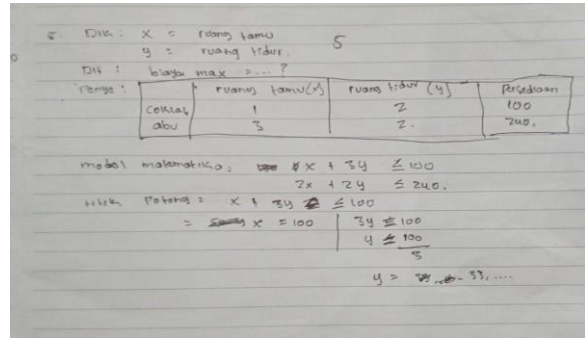 5. Dik : x = ruang tamu
y = ruang tidur.
5
Dit : biaya max = ... ?
Penye :
ruang tamu (x) ruang tidur (y) Persediaan
Coklat 1 2 100
abu 3 2. 240.
model matematika : x + 3y ≤ 100
2x + 2y ≤ 240.
titik Potong : x + 3y ≤ 100
= x = 100 3y ≤ 100
y ≤ 100
3
y = 33, ....